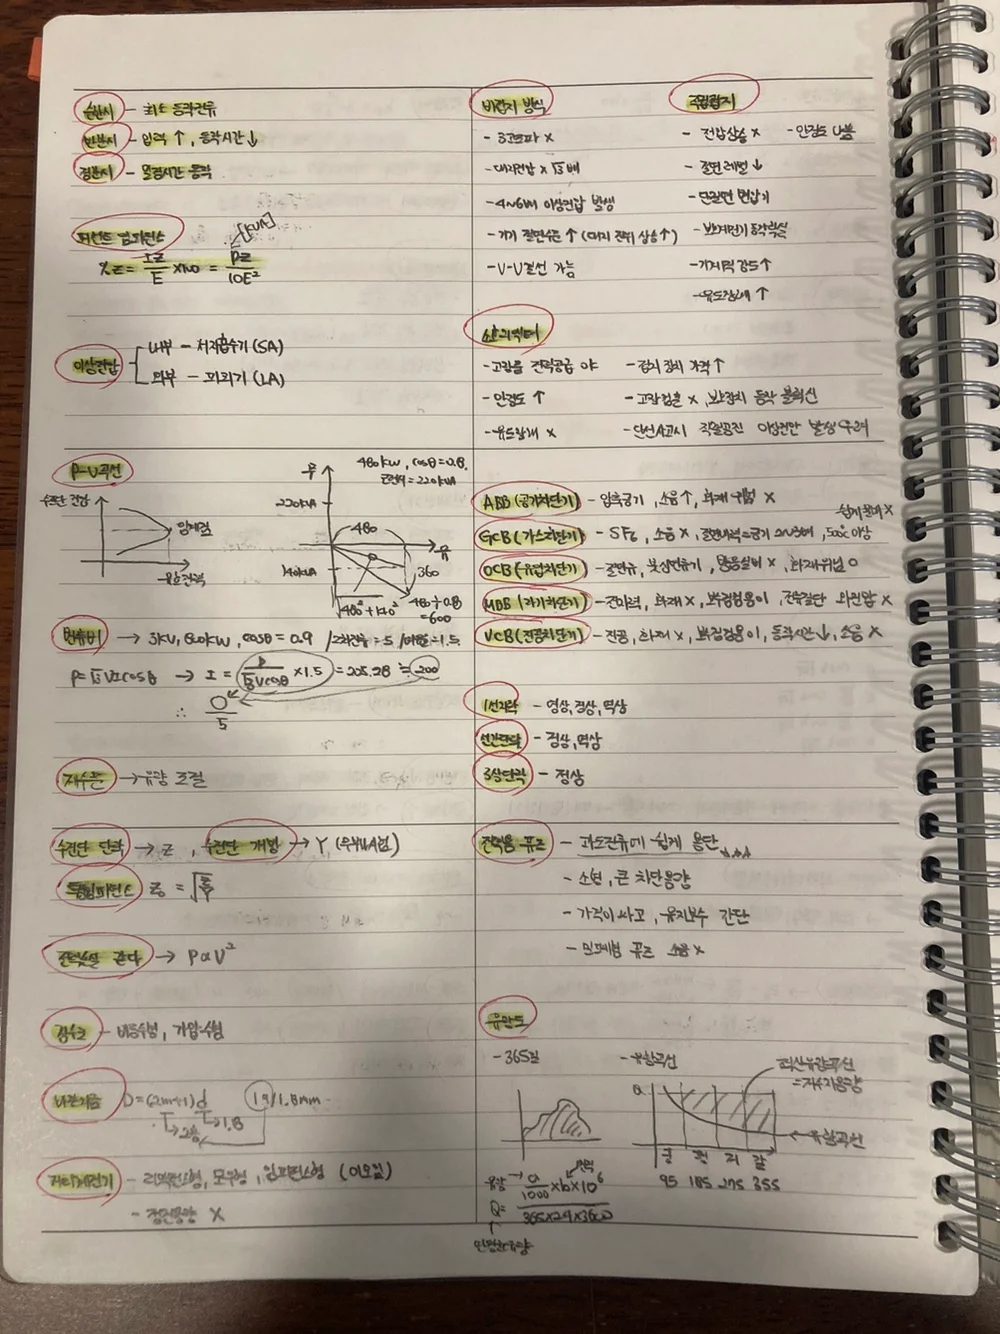 순한시 - 최소 동작전류
반한시 - 입력 ↑, 동작시간 ↓
정한시 - 일정시간 동작
퍼센트 임피던스 [kVA]
%Z = IZ/E ×100 = PZ/10E²
이상전압
내부 - 서지흡수기 (SA)
외부 - 피뢰기 (LA)
P-V곡선
수전단 전압
임계점
유효전력
480kW, cosθ=0.8.
220kVA
P
220kVA
480
유
140kVA
360
√480²+140²
480÷0.8
=600
변류비 → 3kV, 800kW, cosθ = 0.9 / 2차전류 = 5 / 여유율 = 1.5
P=√3VIcosθ → I = P/√3Vcosθ ×1.5 = 205.28 ≒ 200
∴ O/5
제수문 → 유량 조절
수전단 단락 → Z, 수전단 개방 → Y
특성임피던스 Z₀ = √Z/Y
전력손실 같다 → P∝V²
D=(2n+1)d 19/1.8mm
→2층 →1.8
거리계전기 - 리액턴스형, 모우형, 임피던스형
비접지 방식
- 3고조파 ×
- 대지전압 × √3배
- 4~6배 이상전압 발생
- 기기 절연수준 ↑ (대지 전위 상승↑)
- V-V결선 가능
직접접지
- 전압상승 × - 안정도 나쁨
- 절연 레벨 ↓
- 단절연 변압기
- 보호계전기 동작확실
- 기계적 강도 ↑
- 유도장해 ↑
소호리액터
- 고장중 전력공급 - 접지 장치 가격 ↑
- 안정도 ↑ - 고장검출 ×, 보호장치 동작 불확실
- 유도장해 × - 단선사고시 직렬공진 이상전압 발생 우려
ABB (공기차단기) - 압축공기, 소음↑, 화재 위험 ×
GCB (가스차단기) - SF₆, 소음 ×, 절연내력=공기 2~3배, 500℃ 이상
OCB (유입차단기) - 절연유, 붓싱변류기, 방음설비 ×, 화재위험 O
MBB (자기차단기) - 전자력, 화재 ×, 보수점검용이, 전류절단 과전압 ×
VCB (진공차단기) - 진공, 화재 ×, 보수점검용이, 동작시간 ↓, 소음 ×
1선지락 - 영상, 정상, 역상
선간단락 - 정상, 역상
3상단락 - 정상
전력용 퓨즈 - 과도전류에 쉽게 용단
- 소형, 큰 차단용량
- 가격이 싸고, 유지보수 간단
- 밀폐형 퓨즈 소음 ×
유량도
- 365일 - 유황곡선
Q
유황곡선
풍 평 저 갈
95 185 275 355
Q= a/1000 ×b×10⁶
365×24×3600